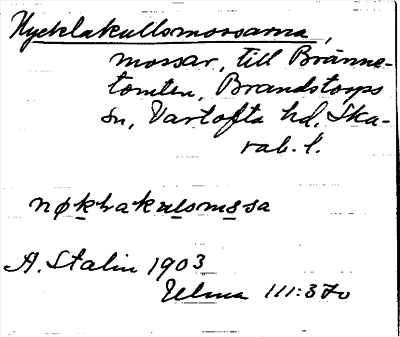 Nycklakullsmossarna,
mossar, till Bränne-
tomten, Brandstorps
sn, Vartofta hd, Ska-
rab. l.
nøkₗakulsmosa
A. Stalin 1903
Ulma 111:370